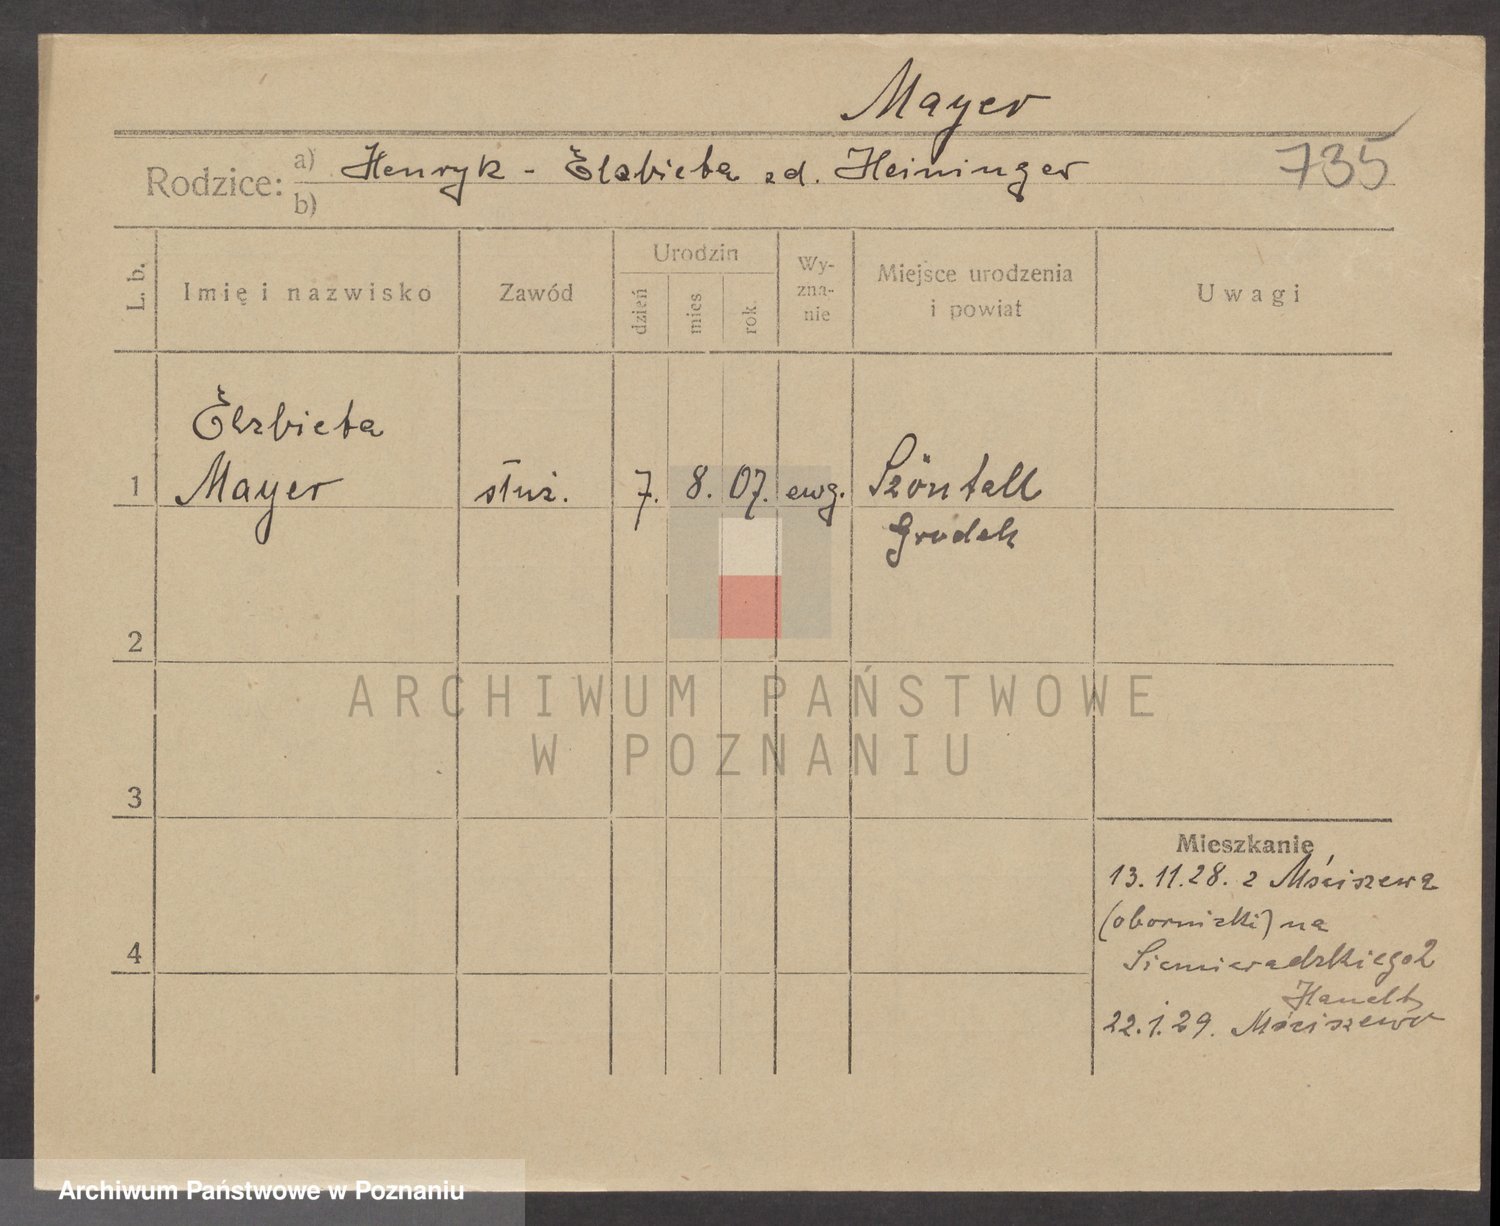 Mayer
Rodzice: a) Henryk - Elzbieta zd. Heininger 735
b)
L. b. Imię i nazwisko Zawód Urodzin dzień mies rok. Wyznanie Miejsce urodzenia i powiat Uwagi
Elzbieta
1 Mayer służ. 7. 8. 07. ewg. Szöntall
Grodek
2
ARCHIWUM PAŃSTWOWE
W POZNANIU
3
Mieszkanie
13.11.28. z Mściszewa
(obornicki) na
4 Siemieradzkiego 2
22.1.29. Mściszewo
Archiwum Państwowe w Poznaniu